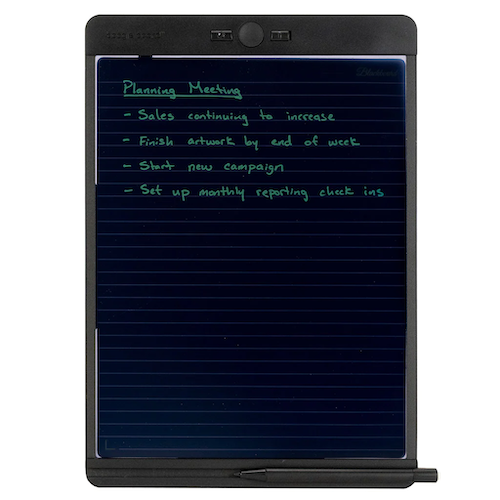 Planning Meeting
- Sales continuing to increase
- Finish artwork by end of week
- Start new campaign
- Set up monthly reporting check ins